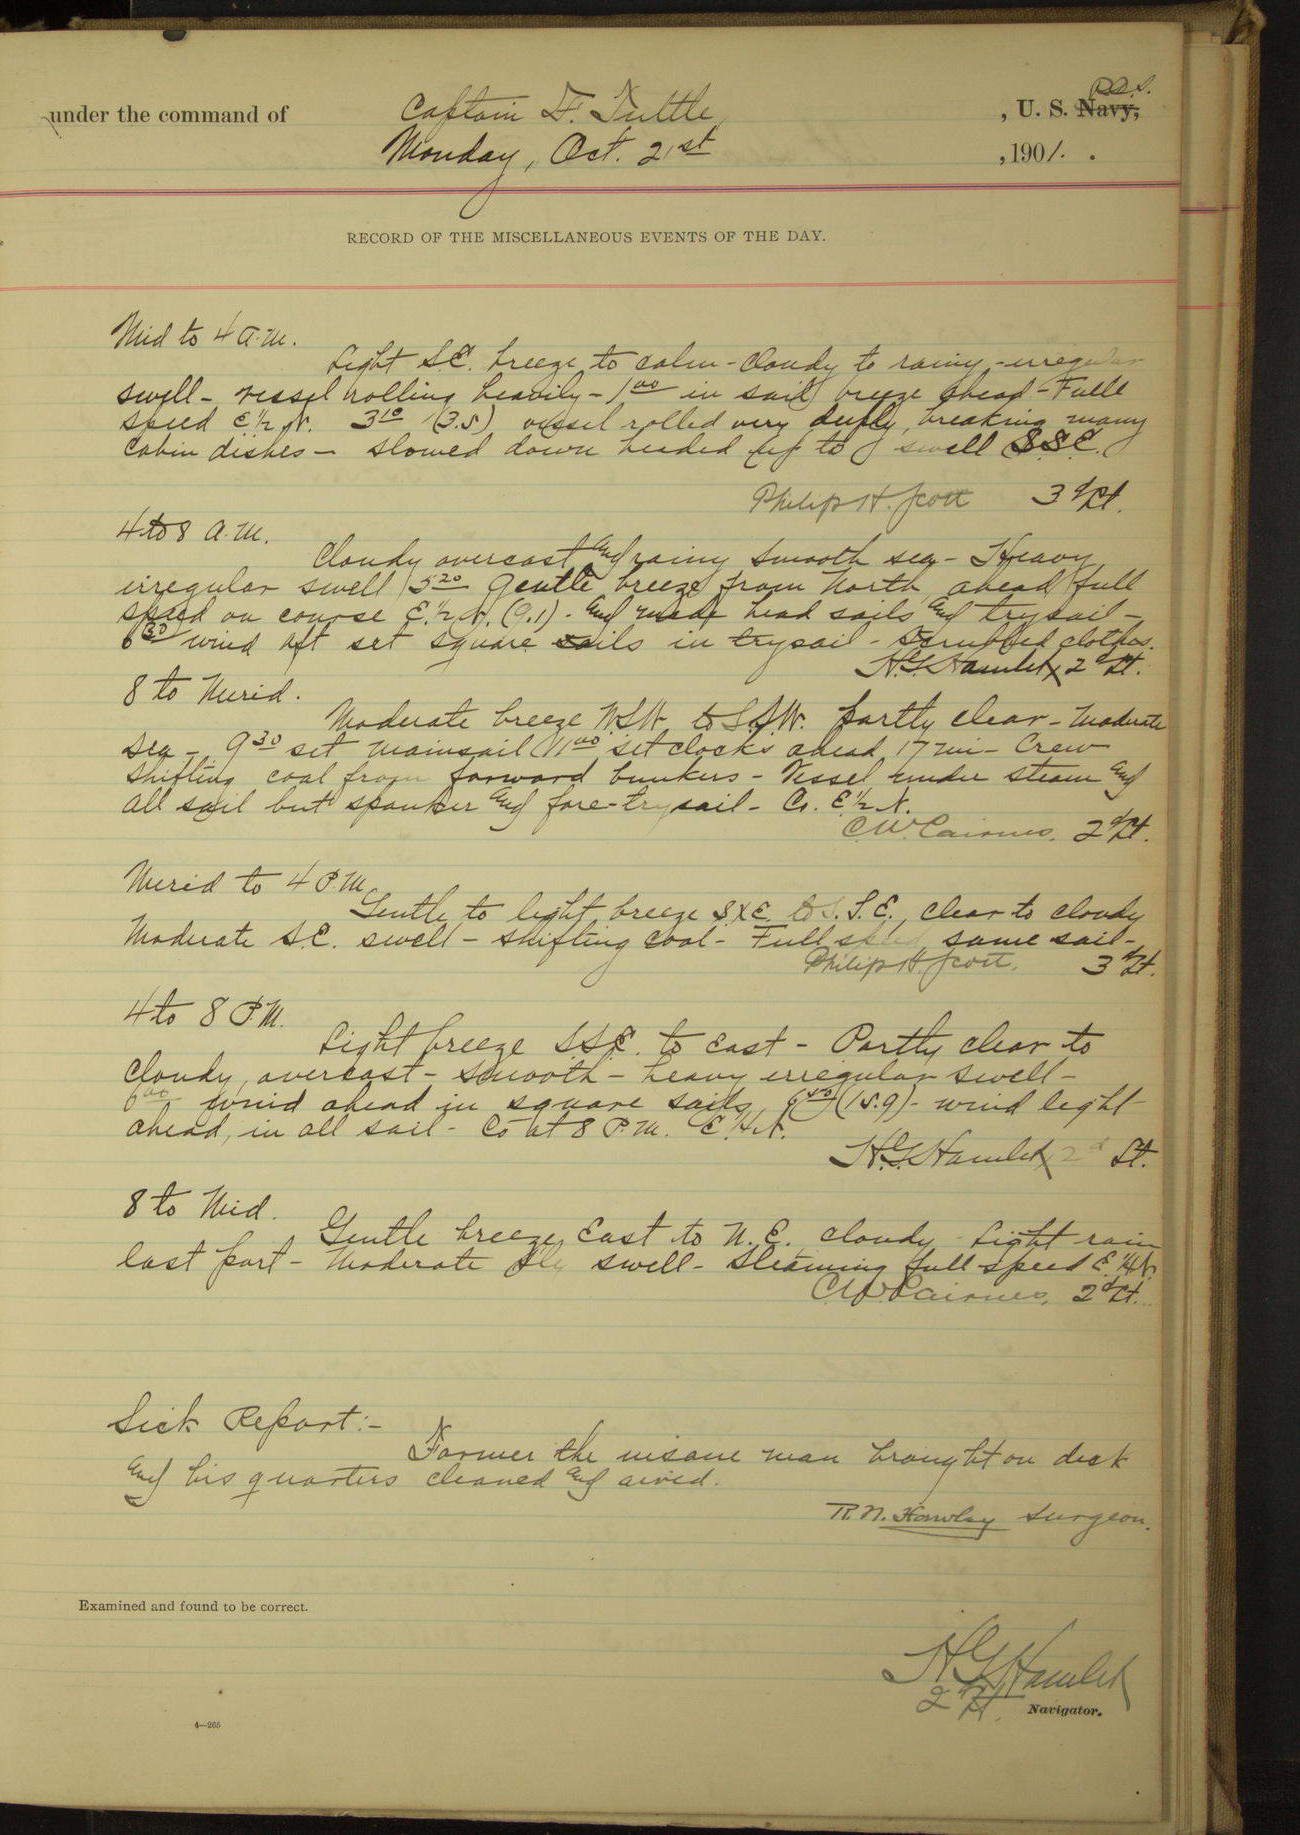 under the command of Captain F. Tuttle, U. S. Navy, R.C.S.
Monday, Oct. 21st , 1901.
RECORD OF THE MISCELLANEOUS EVENTS OF THE DAY.
Mid to 4 A.M.
Light S.E. breeze to calm - cloudy to rainy - irregular
swell - vessel rolling heavily - 1 00 in sail breeze ahead - Full
speed E 1/2 N. 3 10 (3.5) vessel rolled very deeply, breaking many
cabin dishes - slowed down headed up to swell SSE.
Philip H. Scott 3d Lt.
4 to 8 A.M.
Cloudy overcast and rainy smooth sea - Heavy
irregular swell 5 20 Gentle breeze from North, ahead full
speed on course E. 1/2 N. (9.1) - and made head sails and trysail -
6 30 wind aft set square sails in trysail - Scrubbed clothes.
H.G. Hamlet 2d Lt.
8 to Merid.
Moderate breeze W.S.W. to S.S.W. partly clear - Moderate
sea - 9 30 set mainsail 11 00 set clocks ahead 17 mi - Crew
shifting coal from forward bunkers - Vessel under steam and
all sail but spanker and fore-trysail - Co. E 1/2 N.
C.W. Cairnes, 2d Lt.
Merid to 4 P.M.
Gentle to light breeze SxE. to S.S.E., clear to cloudy
Moderate S.E. swell - shifting coal - Full speed, same sail -
Philip H. Scott. 3d Lt.
4 to 8 P.M.
Light breeze SSE. to East - Partly clear to
cloudy, overcast - smooth - heavy irregular swell -
6 00 Wind ahead in square sails, 6 50 (15.9) - wind light
ahead, in all sail - Co at 8 P.M. E. 1/4 N.
H.G. Hamlet 2d Lt.
8 to Mid.
Gentle breeze East to N.E. cloudy - light rain
last part - Moderate Sly swell - Steaming full speed E. 1/4 N.
C.W. Cairnes, 2d Lt.
Sick Report:-
Farmer the insane man brought on deck
and his quarters cleaned and aired.
R.N. Hawley Surgeon.
Examined and found to be correct.
H.G. Hamlet
2d Lt. Navigator.
4-265